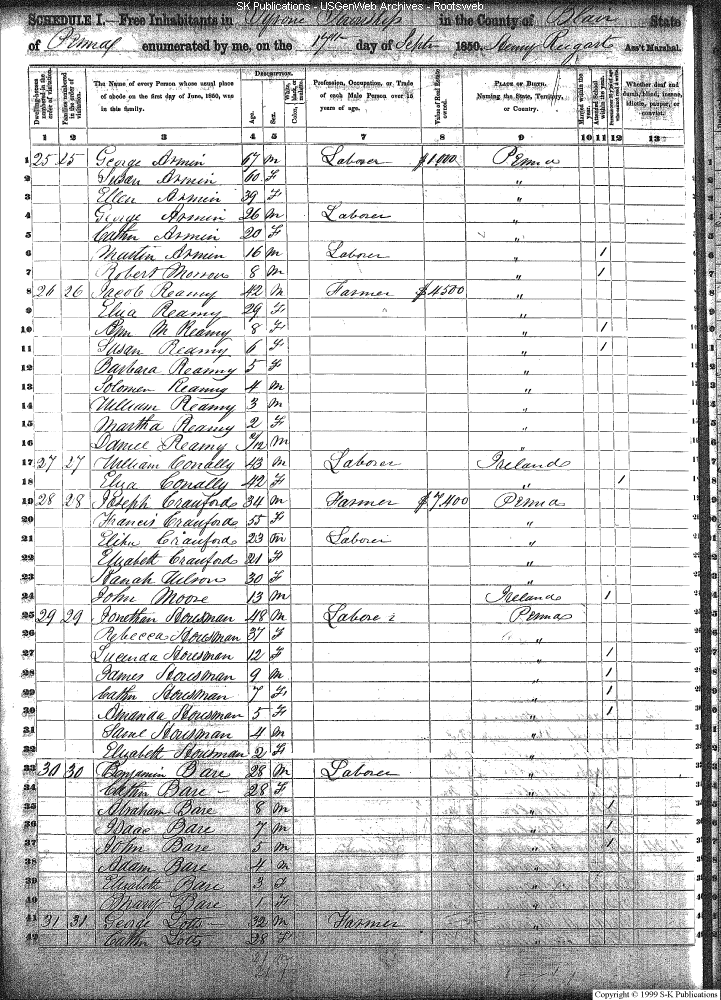 SK Publications - USGenWeb Archives - Rootsweb
SCHEDULE I.—Free Inhabitants in Tyrone Township in the County of Blair State
of Penna enumerated by me, on the 17th day of Septr 1850. Henry Ass't Marshal.
Dwelling-houses numbered in the order of visitation.
Families numbered in the order of visitation.
The Name of every Person whose usual place of abode on the first day of June, 1850, was in this family.
DESCRIPTION.
Age.
Sex.
White, black, or mulatto.
Profession, Occupation, or Trade of each Male Person over 15 years of age.
Value of Real Estate owned.
PLACE OF BIRTH. Naming the State, Territory, or Country.
Married within the year.
Attended School within the year.
Whether deaf and dumb, blind, insane, idiotic, pauper, or convict.
1 2 3 4 5 6 7 8 9 10 11 12 13
1 25 25 George Armin 67 M Laborer $1000 Penna
2 Susan Armin 60 F "
3 Ellen Armin 39 F "
4 George Armin 26 M Laborer "
5 Cathn Armin 20 F "
6 Martin Armin 16 M Laborer " 1
7 Robert Morrow 8 M " 1
8 26 26 Jacob Reamy 42 M Farmer $4500 "
9 Eliza Reamy 29 F "
10 Ann M Reamy 8 F " 1
11 Susan Reamy 6 F " 1
12 Barbara Reamy 5 F "
13 Solomen Reamy 4 M "
14 William Reamy 3 M "
15 Martha Reamy 2 F "
16 Daniel Reamy /12 M "
17 27 27 William Conally 43 M Laborer Ireland
18 Eliza Conally 42 F " 1
19 28 28 Joseph Crawford 34 M Farmer $7,400 Penna
20 Francis Crawford 55 F "
21 Elihu Crawford 23 M Laborer "
22 Elizabeth Crawford 21 F "
23 Hanah Wilson 30 F "
24 John Moore 13 M Ireland 1
25 29 29 Jonathan Housman 48 M Laborer Penna
26 Rebecca Housman 37 F "
27 Lucinda Housman 12 F " 1
28 James Housman 9 M " 1
29 Cathn Housman 7 F " 1
30 Amanda Housman 5 F " 1
31 Saml Housman 4 M "
32 Elizabeth Housman 2 F "
33 30 30 Benjamin Bare 28 M Laborer "
34 Cathn Bare 28 F "
35 Abraham Bare 8 M " 1
36 Isaac Bare 7 M " 1
37 John Bare 5 M " 1
38 Adam Bare 4 M "
39 Elizabeth Bare 3 F "
40 Bare 1 F "
41 31 31 George Lotts 32 M Farmer "
42 Cathn Lotts 38 F "
Copyright © 1999 S-K Publications